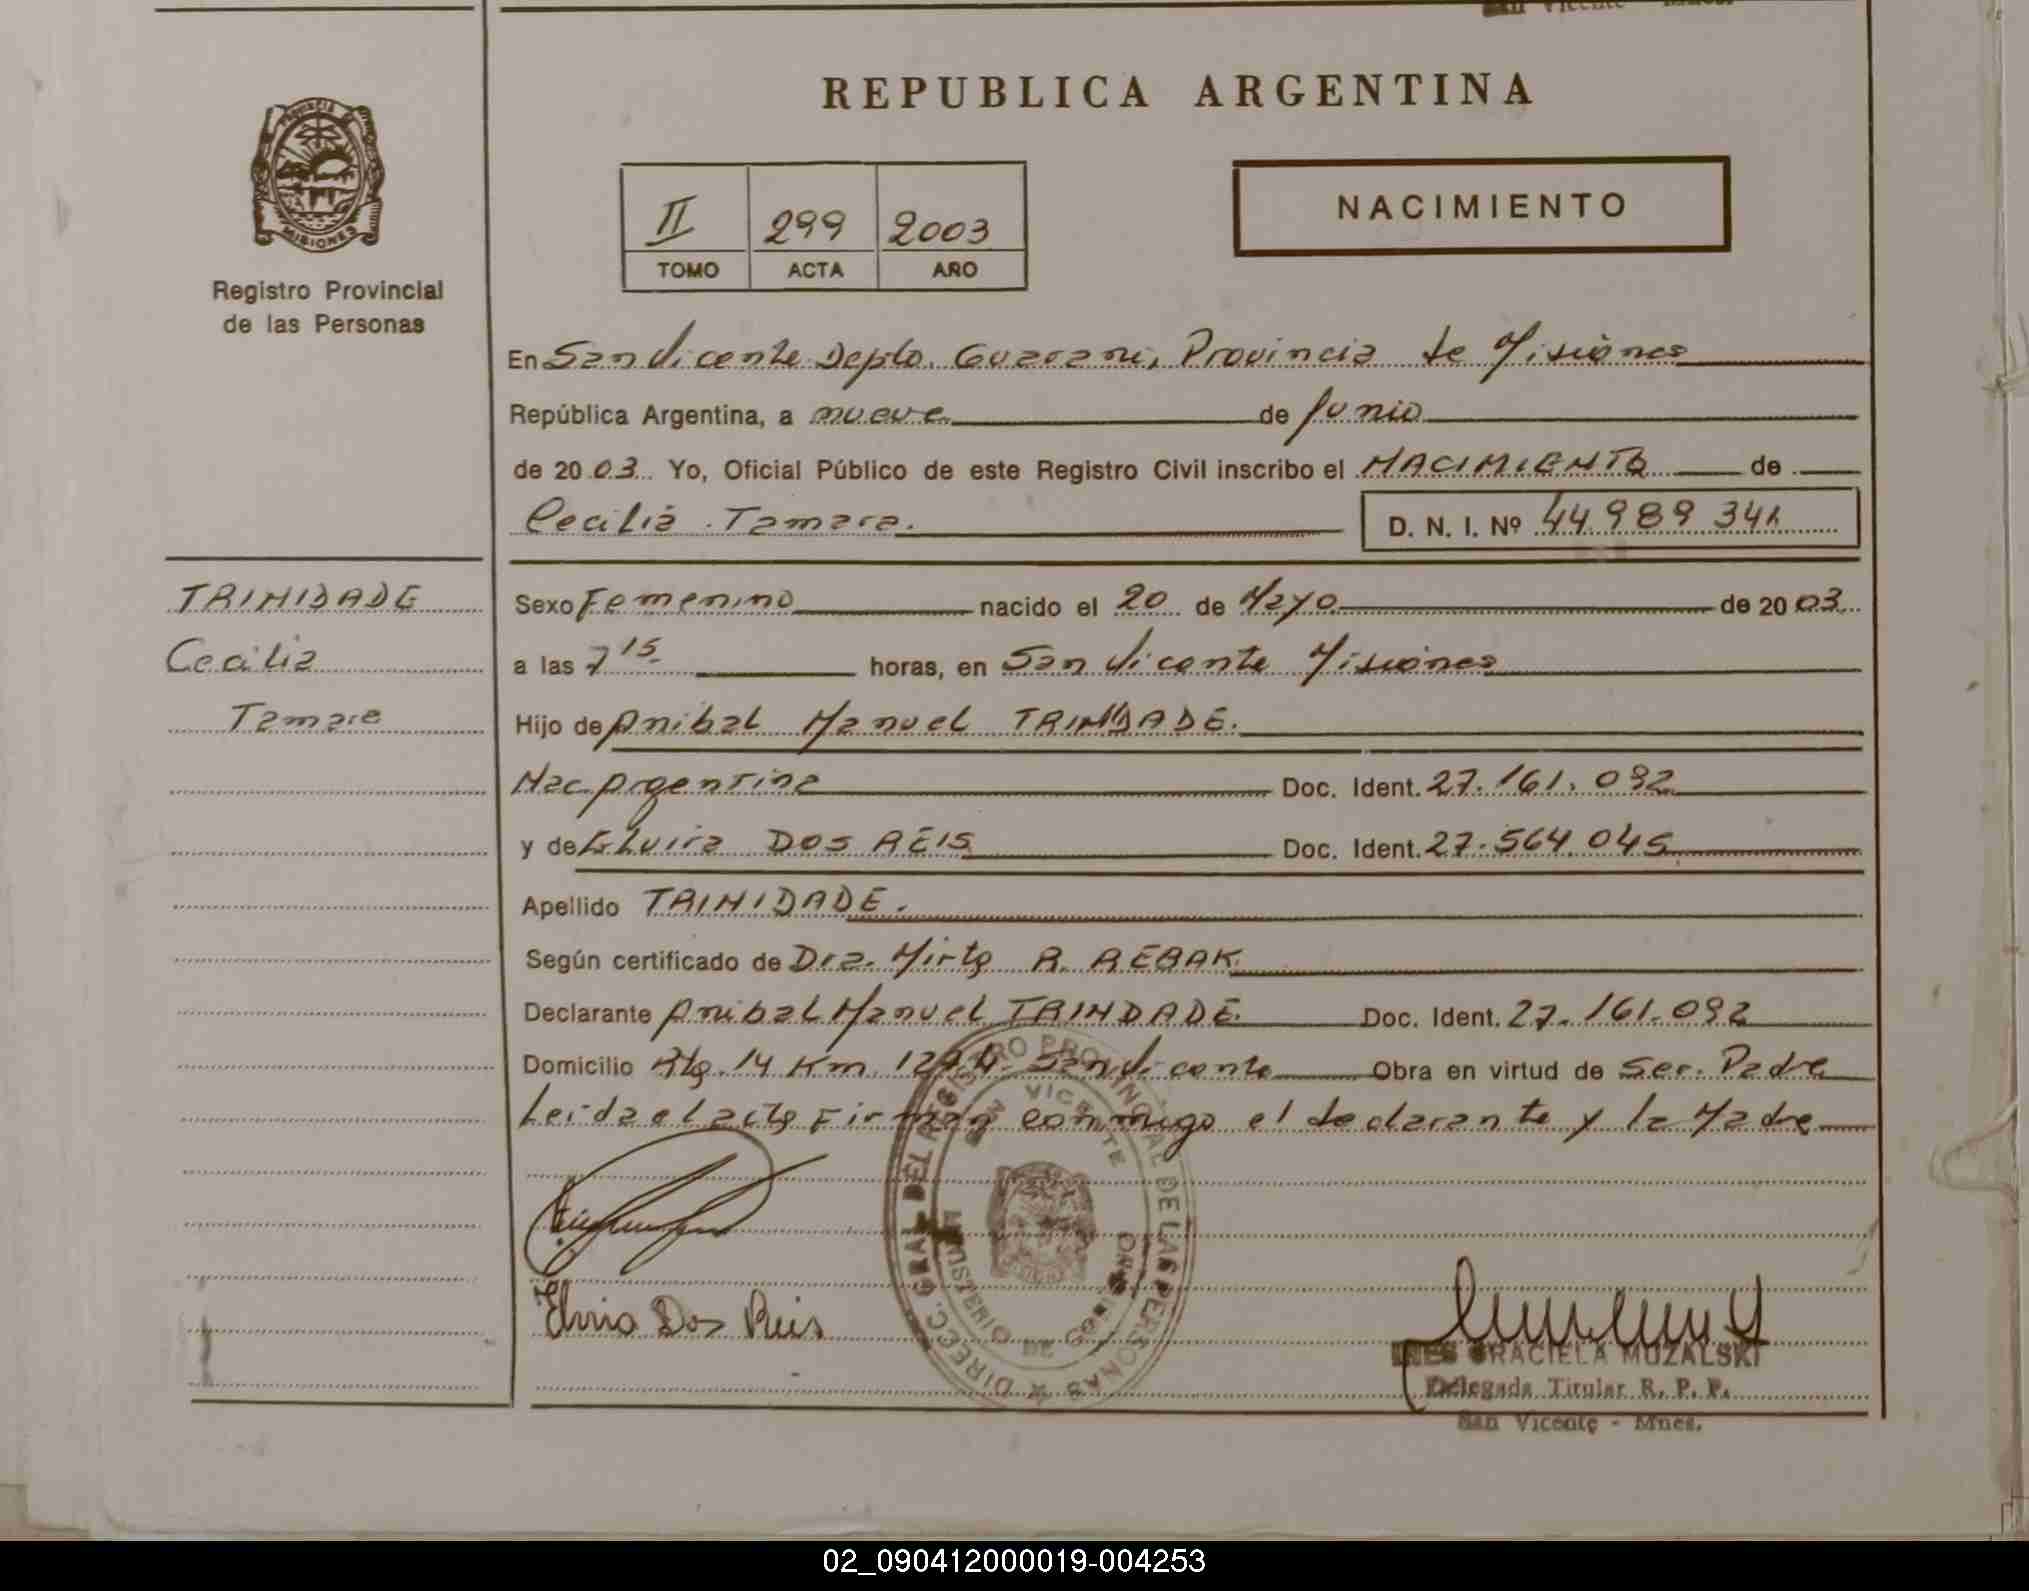 San Vicente - Mnes.
REPUBLICA ARGENTINA
PROVINCIA
MISIONES
Registro Provincial
de las Personas
II 299 2003
TOMO ACTA AÑO
NACIMIENTO
En San Vicente Depto. Guarani, Provincia de Misiones
República Argentina, a nueve de Junio
de 2003 Yo, Oficial Público de este Registro Civil inscribo el NACIMIENTO de
Cecilia Tamara. D. N. I. Nº 44 989 341
TRINIDADE
Cecilia
Tamara
Sexo Femenino nacido el 20 de Mayo de 2003
a las 7 15 horas, en San Vicente Misiones
Hijo de Anibal Manuel TRINIDADE.
Nac Argentina Doc. Ident. 27.161.092
y de Elvira DOS REIS Doc. Ident. 27.564.045
Apellido TRINIDADE.
Según certificado de Dra. Mirta R. REBAK
Declarante Anibal Manuel TRINDADE. Doc. Ident. 27.161.092
Domicilio Rta. 14 Km San Vicente Obra en virtud de Ser. Padre
Leida el acta Firman conmigo el declarante y la Madre
DIREC. GRAL DEL REGISTRO PROVINCIAL DE LAS PERSONAS
SAN VICENTE
MINISTERIO DE GOBIERNO
Elvira Dos Reis
INES GRACIELA MUZALSKI
Delegada Titular R. P. P.
San Vicente - Mnes.
02_090412000019-004253